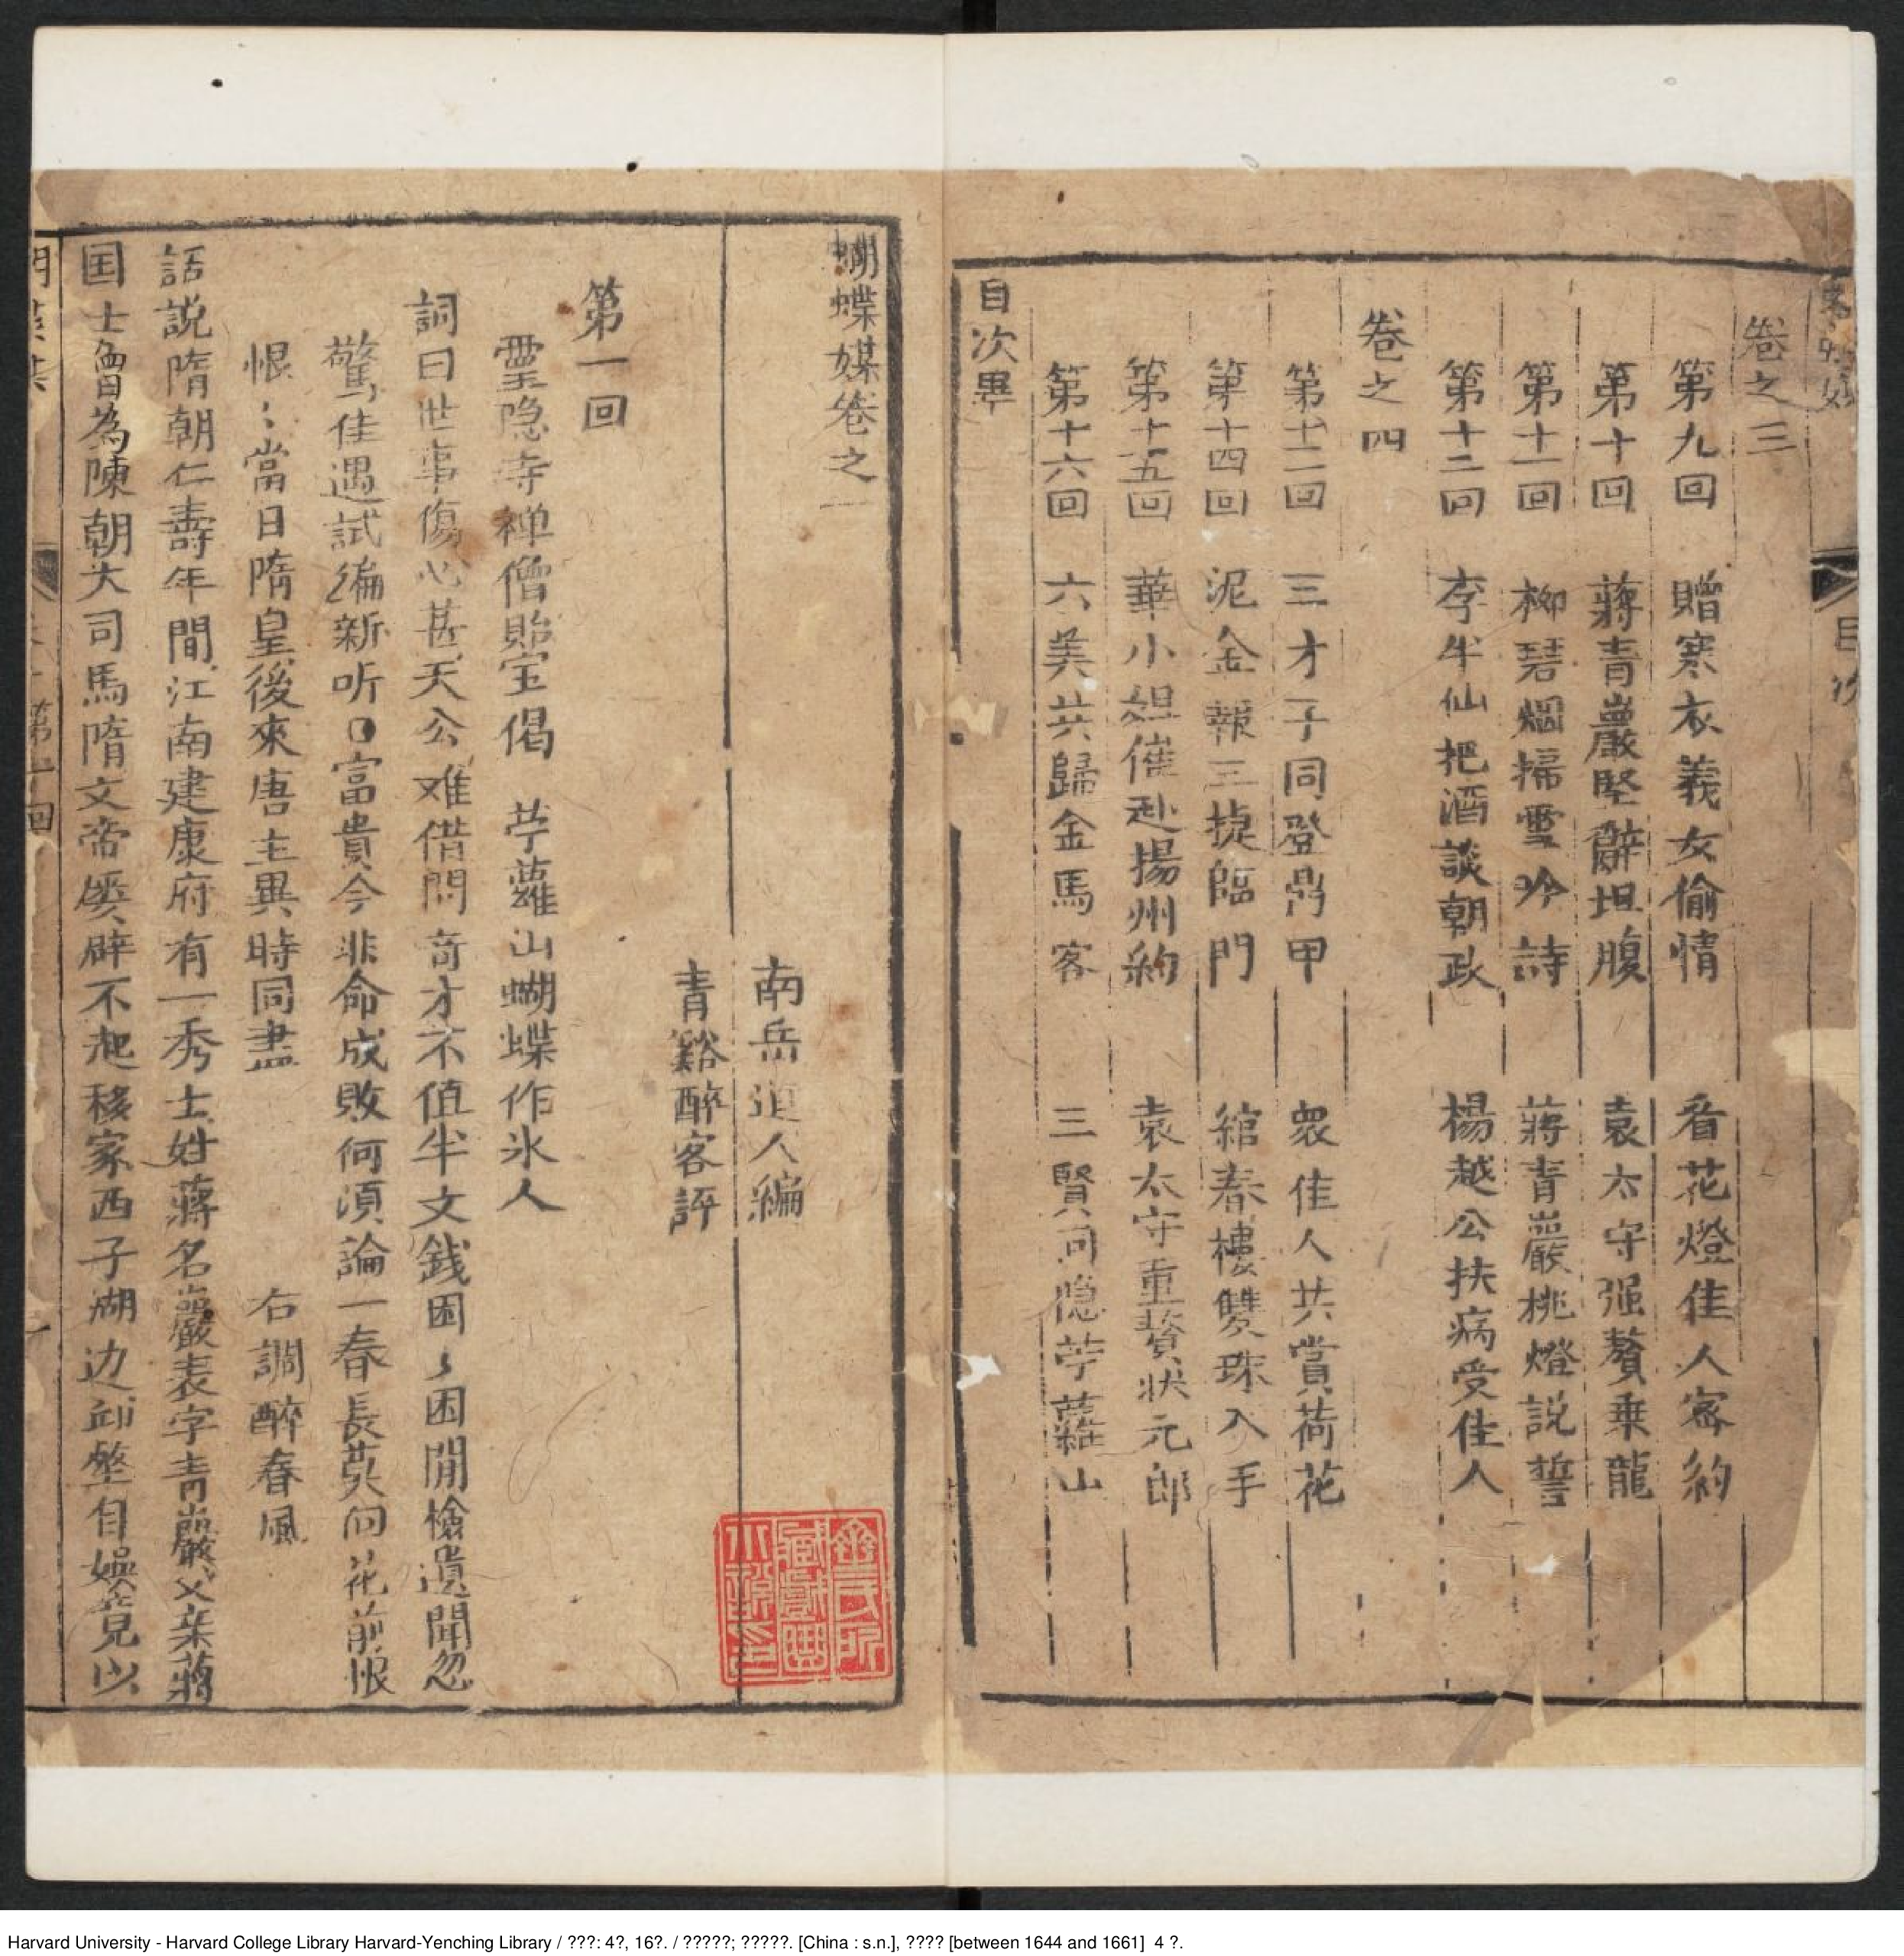 卷之三
第九回 贈寒衣義女偷情 看花燈佳人密約
第十回 蔣青巖堅辭坦腹 袁太守强贅乗龍
第十一回 柳碧烟掃雪吟詩 蔣青巖挑燈説誓
第十二回 李半仙把酒談朝政 楊越公扶病受佳人
卷之四
第十三回 三才子同登鼎甲 衆佳人共賞荷花
第十四回 泥金報三捷臨門 綰春樓雙珠入手
第十五回 華小姐催赴揚州約 袁太守重贅状元郎
第十六回 六美共歸金馬客 三賢同隐苧蘿山
目次畢
蝴蝶媒卷之一
南岳道人編
青谿醉客評
第一回
靈隐寺禅僧貽宝偈 苧蘿山蝴蝶作氷人
詞曰世事傷心甚天公难借問奇才不值半文銭困〻困閒檢遺聞忽
驚佳遇試编新听口富貴今非命成敗何湏論一春長莫向花前恨
恨〻當日隋皇後來唐主異時同盡 右調醉春風
話説隋朝仁壽年間江南建康府有一秀士姓蔣名巖表字青巖父亲蔣
国士曽為陳朝大司馬隋文帝屡辟不起移家西子湖边邱壑自娱竟以
金氏所
藏戲曲
小説印
Harvard University - Harvard College Library Harvard-Yenching Library / ???: 4?, 16?. / ?????; ?????. [China : s.n.], ???? [between 1644 and 1661] 4 ?.